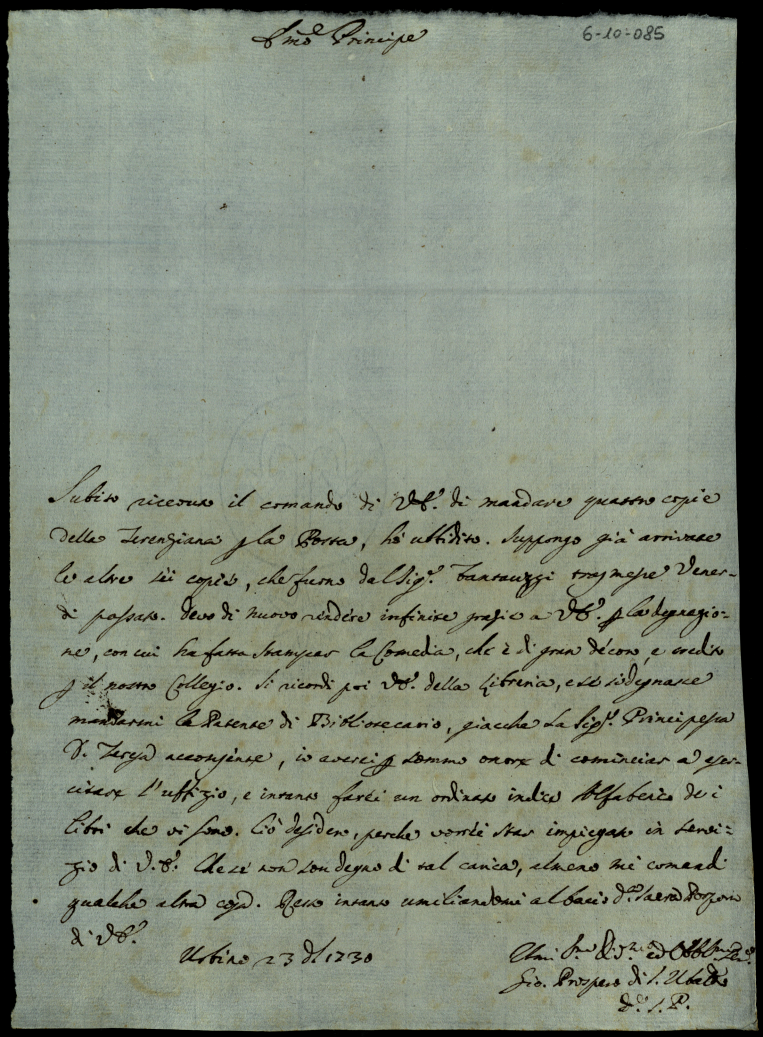 Emo Principe
6-10-085
Subito ricevuto il comando di VE. di mandare quattro copie
della Terenziana p la Posta, hò ubbidito. Suppongo già arrivate
le altre sei copie, che furno dal Sigr. Fantauzzi trasmesse Vener-
di passato. Devo di nuovo rendere infinite grazie a VE. p la degnazio-
ne, con cui ha fatta stampar la Comedia, che è di gran decoro, e credito
p il nostro Collegio. Si ricordi poi VE. della Libreria, e se si degnasse
mandarmi la Patente di Bibliotecario, giacche la Sigr. Principessa
D. Teresa acconsente, io averei p sommo onore di cominciar a eser-
citare l'uffizio, e intanto farei un ordinato indice Alfabetico de i
libri che vi sono. Ciò desidero, perche vorrei star impiegato in servi-
zio di V.E. Che se non son degno di tal carica, almeno mi comandi
qualche altra cosa. Resto intanto umiliandomi al bacio da Sacra Porpora
di VE.
Urbino 23 1730
Umi Smo Ossmo ed Obbmo
Gio. Prospero di S. Ubaldo
d. S. P.